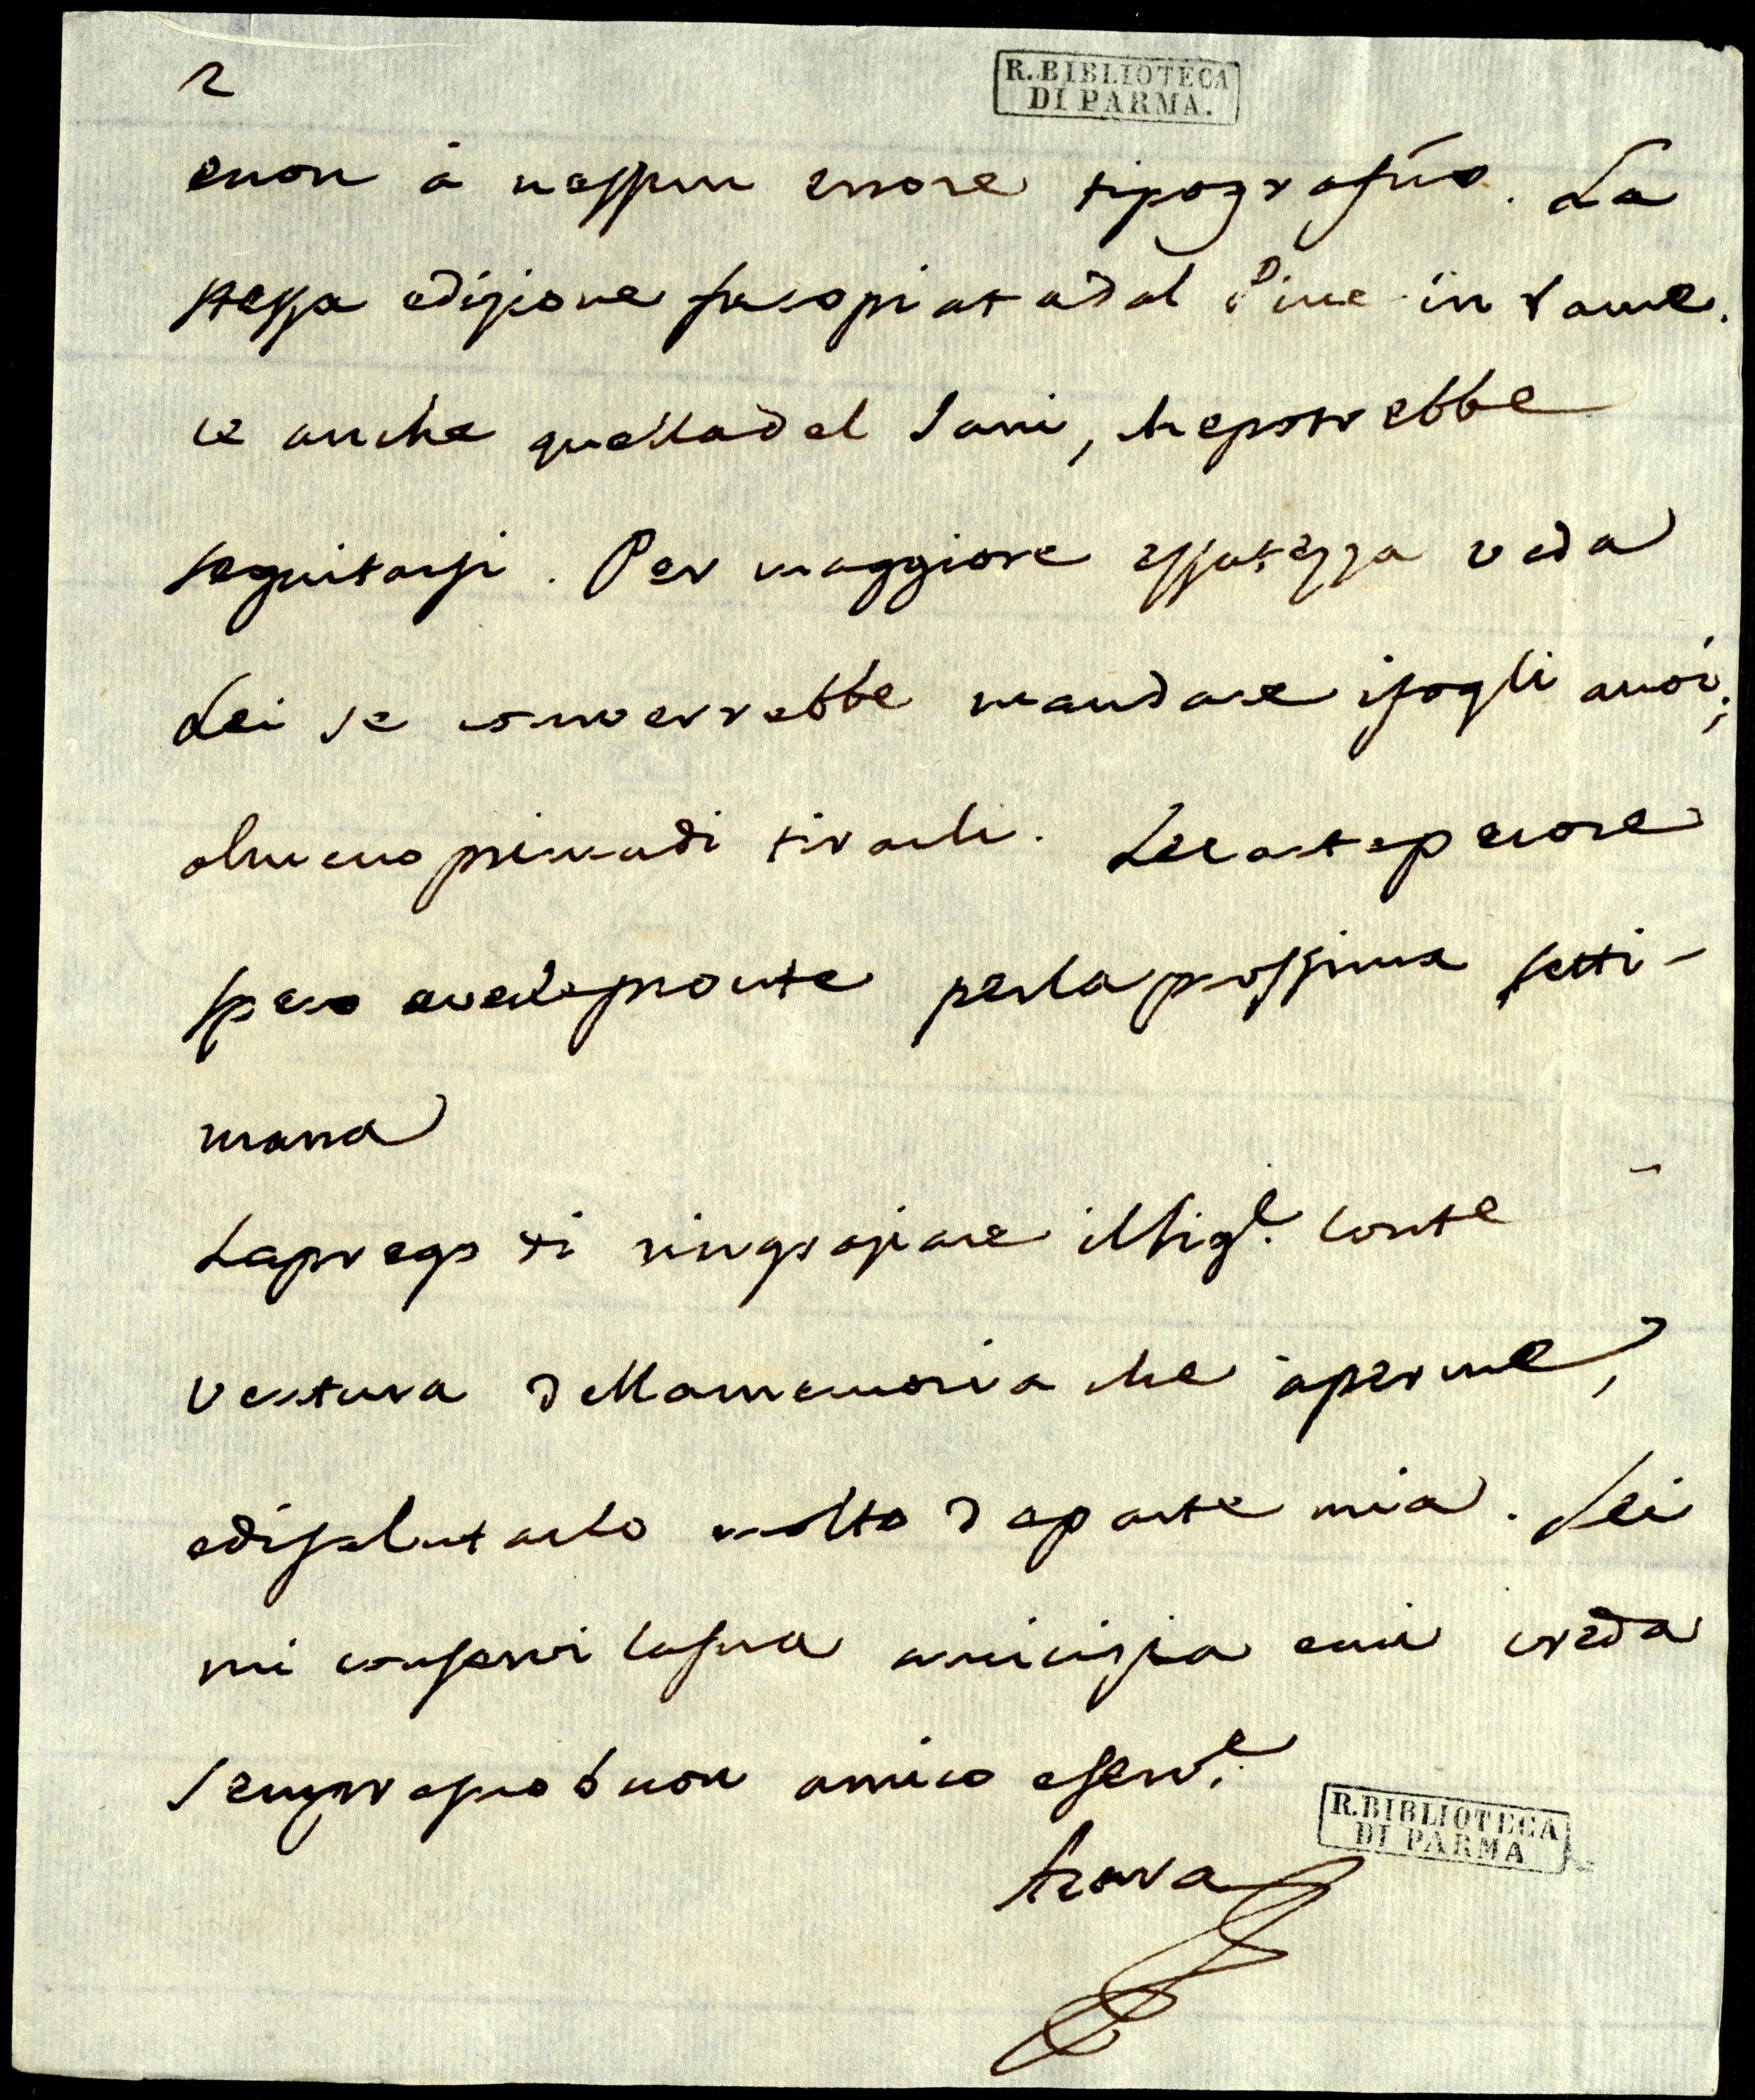 2
R. BIBLIOTECA
DI PARMA.
enon à nessun errore tipografico. La
stessa edizione fu copiatadal Pine in rame.
ce anche quelladel Sani, chepotrebbe
seguitarsi. Per maggiore essatezza veda
Lei se converrebbe mandare ifogli anoi,
almeno primadi tirarli. Lecartepecore
spero averlepronte perlaprossima setti-
mana
Laprego di ringraziare ilSig.e Conte
Ventura dellamemoria che àperme,
edisalutarlo molto daparte mia. Lei
mi conservi lasua amicizia emi creda
sempresuobuon amico eserv.e
Azara
R. BIBLIOTECA
DI PARMA